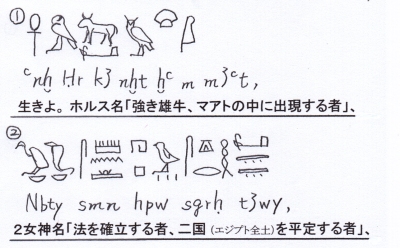 ①
ꜥnḫ Ḥr kꜣ nḫt ḫꜥ m mꜣꜥt,
生きよ。ホルス名「強き雄牛、マアトの中に出現する者」、
②
Nbty smn hpw sgrḥ tꜣwy,
2女神名「法を確立する者、二国(エジプト全土)を平定する者」、